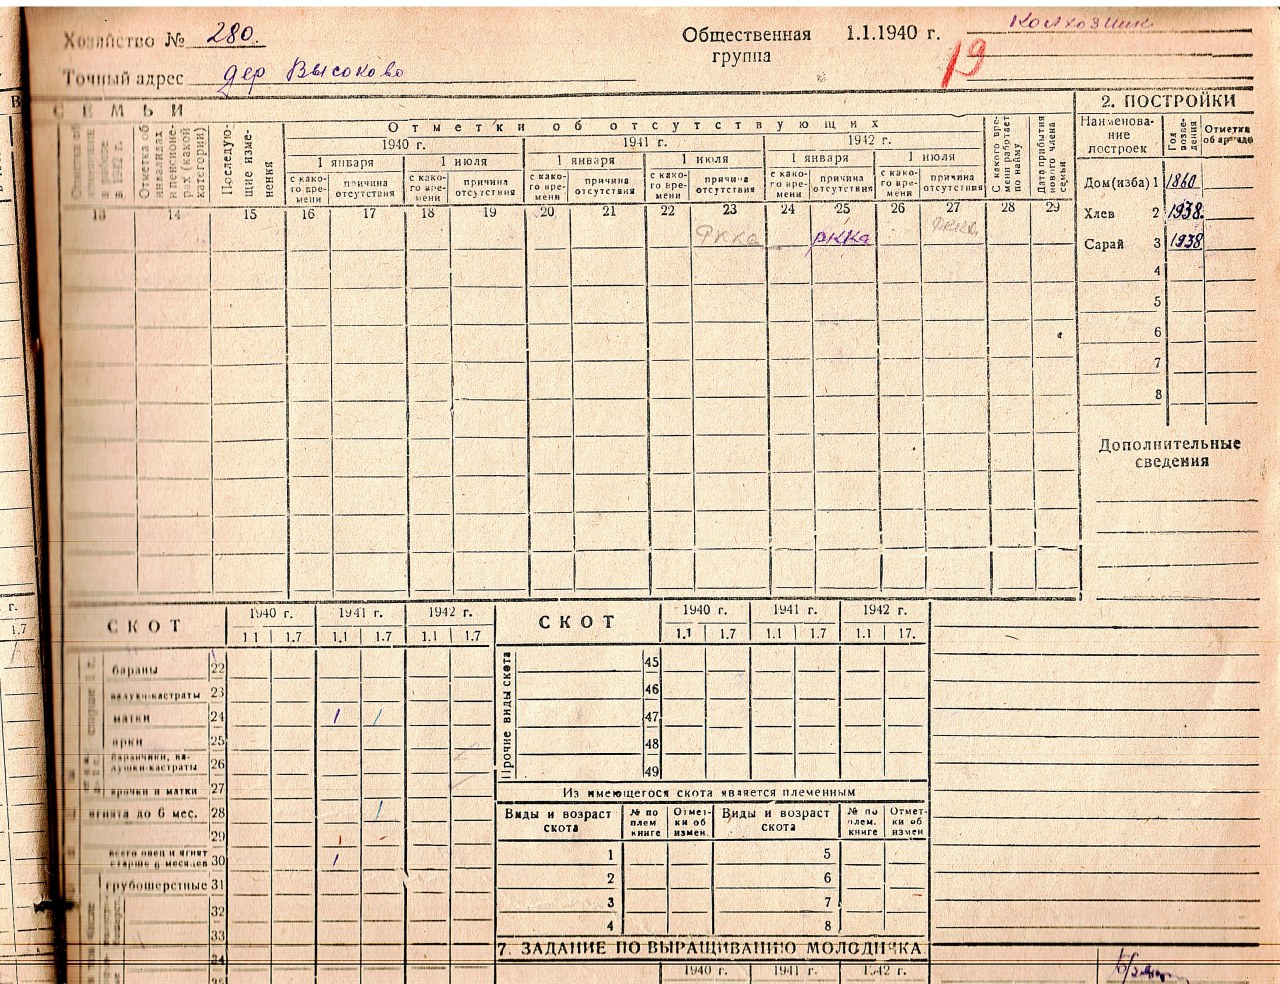 Хозяйство № 280.
Общественная группа 1.1.1940 г. Колхозник
19
Точный адрес дер Высоково
СЕМЬИ
Отметка об инвалидах и пенсионерах (какой категории)
Последующие изменения
Отметки об отсутствующих
1940 г. 1941 г. 1942 г.
1 января 1 июля 1 января 1 июля 1 января 1 июля
с какого времени причина отсутствия с какого времени причина отсутствия с какого времени причина отсутствия с какого времени причина отсутствия с какого времени причина отсутствия с какого времени причина отсутствия
С какого времени работает по найму
Дата прибытия нового члена семьи
13 14 15 16 17 18 19 20 21 22 23 24 25 26 27 28 29
РККА РККА РККА
2. ПОСТРОЙКИ
Наименование построек Год возведения Отметка об аренде
Дом(изба) 1 1860
Хлев 2 1938.
Сарай 3 1938
4
5
6
7
8
Дополнительные
сведения
СКОТ 1940 г. 1941 г. 1942 г.
1.1 1.7 1.1 1.7 1.1 1.7
бараны 22
валухи-кастраты 23
матки 24 1 1
ярки 25
баранчики, валушки-кастраты 26
ярочки и матки 27
ягнята до 6 мес. 28 1
29 1
всего овец и ягнят старше 6 месяцев 30 1
грубошерстные 31
32
33
34
35
СКОТ 1940 г. 1941 г. 1942 г.
1.1 1.7 1.1 1.7 1.1 17.
Прочие виды скота
45
46
47
48
49
Из имеющегося скота является племенным
Виды и возраст скота № по плем книге Отметки об измен. Виды и возраст скота № по плем. книге Отметки об измен
1 5
2 6
3 7
4 8
7. ЗАДАНИЕ ПО ВЫРАЩИВАНИЮ МОЛОДНЯКА
1940 г. 1941 г. 1942 г.